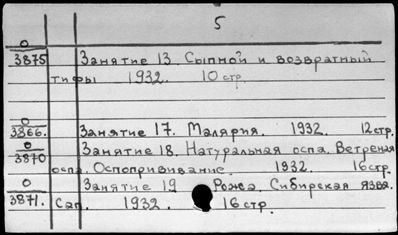 5
О
3875 Занятие 13. Сыпной и возвратный
тифы 1932. 10 стр.
О
3866. Занятие 17. Малярия. 1932. 12 стр.
О Занятие 18. Натуральная оспа. Ветреная
3870 оспа. Оспопрививание. 1932. 16 стр.
О Занятие 19 Рожа. Сибирская язва.
3871. Сап. 1932. 16 стр.